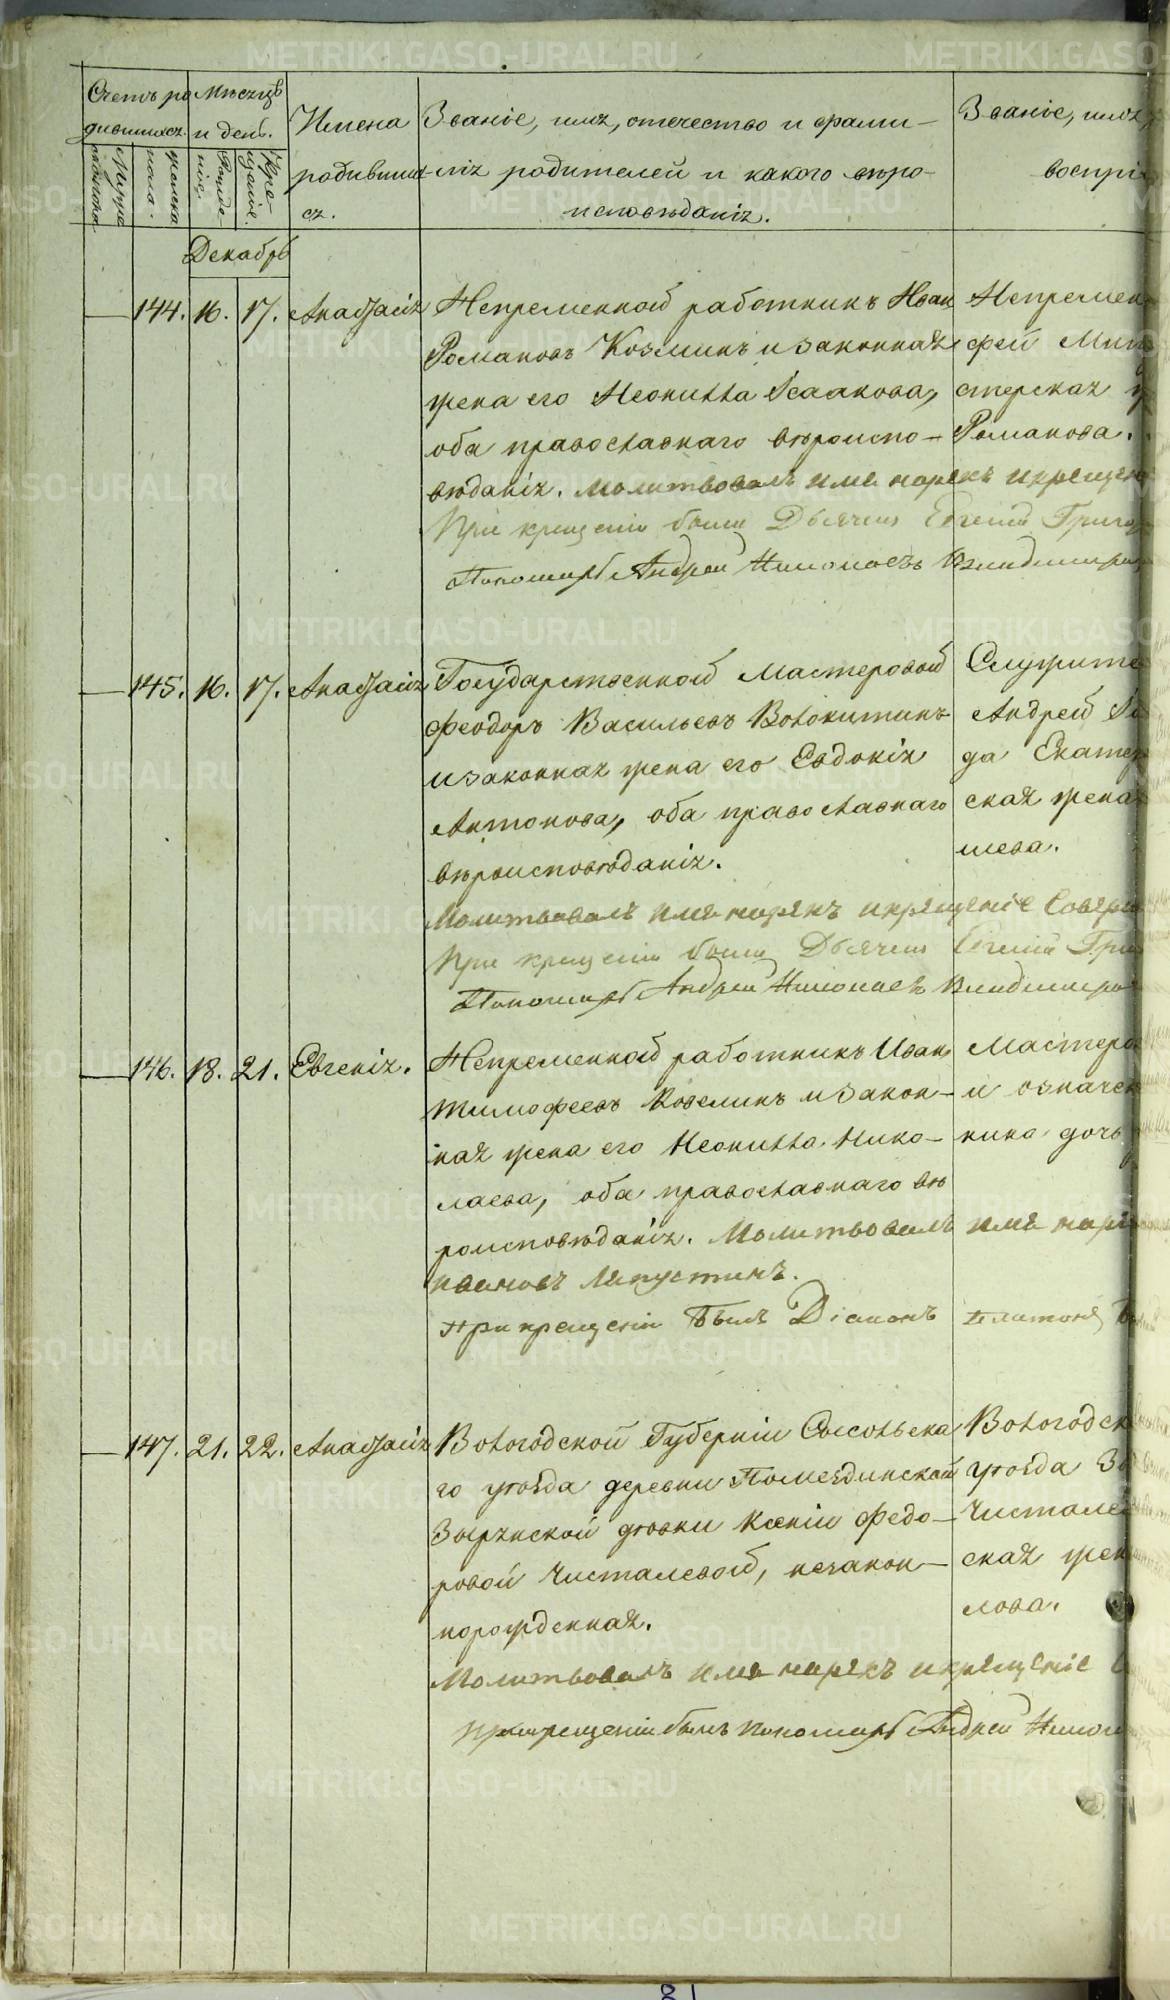 Счетъ ро
дившихся.
Мѣсяцъ
и день.
Мужеска
пола.
женска
пола.
Рожде-
нiе.
Кре-
щенiе.
Имена
родивших-
ся.
Званiе, имя, отечество и фами-
лiя родителей и какого вѣро-
исповѣданiя.
Званiе, имя
воспрi
Декабрь
144. 16. 17. Анастасiя
Непременной работникъ Иван
Романовъ Козминъ и законная
жена его Неонилла Исаакова,
оба православнаго вѣроиспо-
вѣданiя. Молитвовалъ имя нарекъ и крещен
При крещенiи были Дьячекъ Евгенiй Григор
Пономарь Андрей Николаевъ Владимиро
Непремен
фей Мит
стерская
Романова.
145. 16. 17. Анастасiя
Государственной Мастеровой
Феодоръ Васильевъ Волокитинъ
и законная жена его Евдокiя
Антонова, оба православнаго
вѣроисповѣданiя.
Молитвовалъ имя нарекъ и крещенiе Соверш
При крещенiи были Дьячекъ Евгенiй Гри
Пономарь Андрей Николаевъ Владимиро
Служите
Андрей
да Екатер
ская жена
шева.
146. 18. 21. Евгенiя.
Непременной работникъ Иван
Тимофеевъ Козминъ и закон-
ная жена его Неонилла Нико-
лаева, оба православнаго вѣ
роисповѣданiя. Молитвовалъ имя наре
Ивановъ Лапустинъ.
При крещенiи былъ Дiаконъ Платонъ
Мастеро
и означен
кина дочь
147. 21. 22. Анастасiя
Вологодской Губернiи Сысольска
го уѣзда деревни Помездинской
Зырянской дѣвки Ксенiи Федо-
ровой Чисталевой, незакон-
норожденная.
Молитвовалъ имя нарекъ и крещенiе
При крещенiи былъ пономарь Андрей Никол
Вологодск
уѣзда
Чисталев
ская жен
лова.
81
METRIKI.GASO-URAL.RU